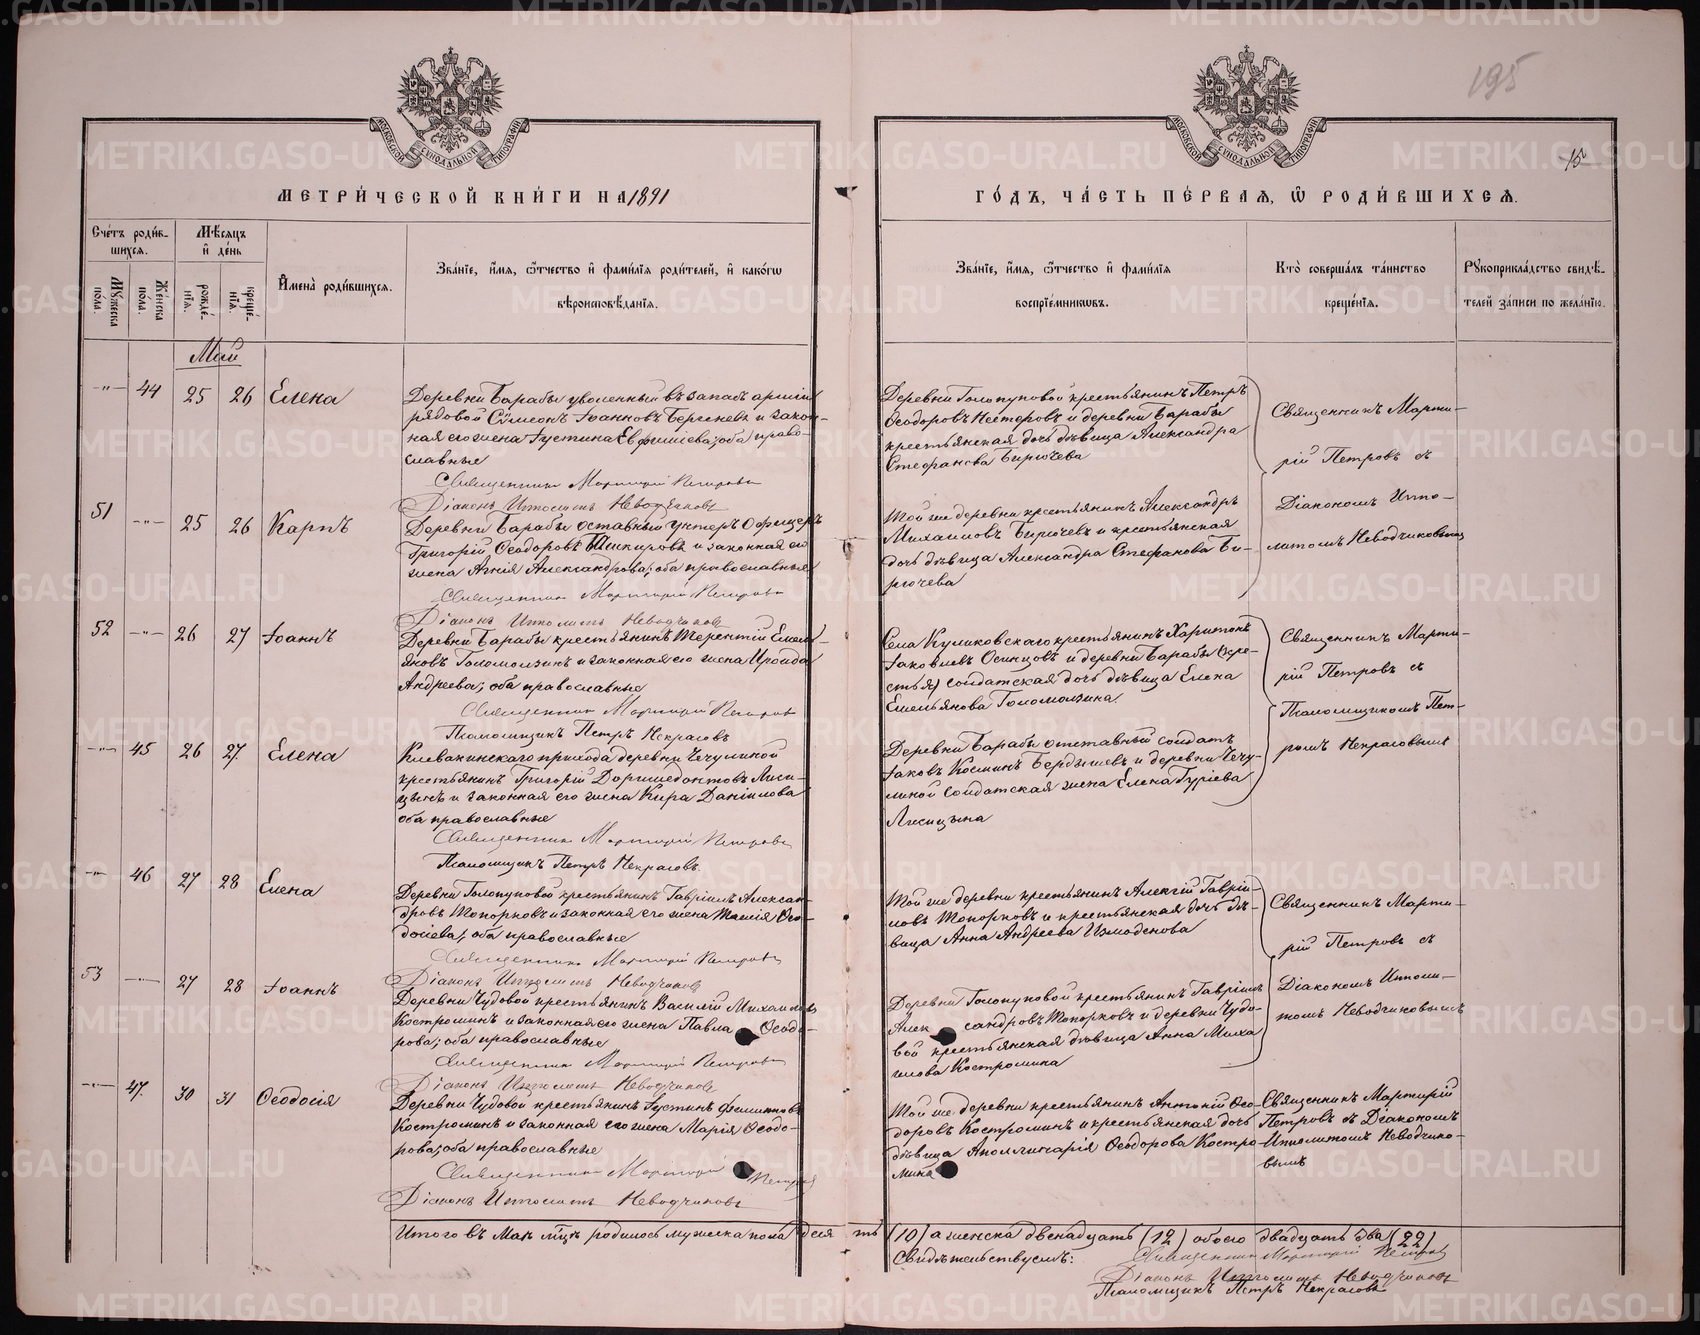 195
МОСКОВСКОЙ СѴНОДАЛЬНОЙ ТИПОГРАФІИ
МОСКОВСКОЙ СѴНОДАЛЬНОЙ ТИПОГРАФІИ
МЕТРИ́ЧЕСКОЙ КНИ́ГИ НА 1891
ГО́ДЪ, ЧА́СТЬ ПЕ́РВАЯ, Ѿ РОДИ́ВШИХСЯ.
Сче́тъ роди́в-
шихся.
Мѣсяцъ
и҆ де́нь
Мꙋ́жеска
по́ла.
Же́нска
по́ла.
рожде́-
нїя.
креще́-
нїя.
И҆мена̀ роди́вшихся.
Зва́нїе, и҆́мя, ѻ҆́тчество и҆ фами́лїя роди́телей, и҆ како́гѡ
вѣроисповѣ́данїя.
Зва́нїе, и҆́мя, ѻ҆́тчество и҆ фами́лїя
воспрїе́мниковъ.
Кто̀ соверша́лъ та́инство
креще́нїя.
Рꙋкоприкла́дство свидѣ́-
телей за́писи по жела́нїю.
Май
-"- 44 25 26 Елена
Деревни Барабы уволенный въ запасъ арміи
рядовой Сѵмеонъ Іоанновъ Берсеневъ и закон-
ная его жена Іустина Евфимиева; оба право-
славные
Священникъ Мартирій Петровъ
Діаконъ Ипполитъ Неводчиковъ
Деревни Голопуповой крестьянинъ Петръ
Ѳеодоровъ Нестеровъ и деревни Барабы
крестьянская дочь дѣвица Александра
Стефанова Бирючева
Священникъ Марти-
рій Петровъ съ
Діакономъ Иппо-
литомъ Неводчиковымъ
51 -"- 25 26 Карпъ
Деревни Барабы отставный унтеръ офицеръ
Григорій Ѳеодоровъ и законная его
жена Агнія Александрова; оба православные
Священникъ Мартирій Петровъ
Діаконъ Ипполитъ Неводчиковъ
Той же деревни крестьянинъ Александръ
Михаиловъ Бирючевъ и крестьянская
дочь дѣвица Александра Стефанова Би-
рючева
52 -"- 26 27 Іоаннъ
Деревни Барабы крестьянинъ Терентій Емель-
яновъ Голомолзинъ и законная его жена Ираида
Андреева; оба православные
Священникъ Мартирій Петровъ
Псаломщикъ Петръ Некрасовъ
Села Куликовскаго крестьянинъ Харитонъ
Іаковлевъ Осинцовъ и деревни Барабы
солдатская дочь дѣвица Елена
Емельянова Голомолзина.
Священникъ Марти-
рій Петровъ съ
Псаломщикомъ Пет-
ромъ Некрасовымъ
-"- 45 26 27. Елена
Клевакинскаго прихода деревни Чечулиной
крестьянинъ Григорій Дормедонтовъ Лиси-
цынъ и законная его жена Кира Даніилова
оба православные
Священникъ Мартирій Петровъ
Псаломщикъ Петръ Некрасовъ.
Деревни Барабы отставный солдатъ
Іаковъ Косминъ Бердышевъ и деревни Чечу-
линой солдатская жена Елена Гуріева
Лисицына
-"- 46 27 28 Елена
Деревни Голопуповой крестьянинъ Гавріилъ Алексан-
дровъ Топорковъ и законная его жена Таисія Ѳео-
досіева; оба православные
Священникъ Мартирій Петровъ
Діаконъ Ипполитъ Неводчиковъ
Той же деревни крестьянинъ Алексій Гавріи-
ловъ Топорковъ и крестьянская дочь дѣ-
вица Анна Андреева Измоденова
Священникъ Марти-
рій Петровъ съ
Діакономъ Ипполи-
томъ Неводчиковымъ
53 -"- 27 28 Іоаннъ
Деревни Чудовой крестьянинъ Василій Михаиловъ
Костроминъ и законная его жена Павла Ѳеодо-
рова; оба православные
Священникъ Мартирій Петровъ
Діаконъ Ипполитъ Неводчиковъ
Деревни Голопуповой крестьянинъ Гавріилъ
Александровъ Топорковъ и деревни Чудо-
вой крестьянская дѣвица Анна Миха
илова Костромина
-"- 47. 30 31 Ѳеодосія
Деревни Чудовой крестьянинъ Іустинъ Филипповъ
Костроминъ и законная его жена Марія Ѳеодо-
рова; оба православные
Священникъ Мартирій Петровъ
Діаконъ Ипполитъ Неводчиковъ
Той же деревни крестьянинъ Антоній Ѳео-
доровъ Костроминъ и крестьянская дочь
дѣвица Аполлинарія Ѳеодорова Костро-
мина
Священникъ Мартирій
Петровъ съ Діакономъ
Ипполитомъ Неводчико-
вымъ
Итого въ Маѣ мцѣ родилось мужеска пола десять (10) а женска двенадцать (12) обоего двадцать два (22)
Свидѣтельствуемъ:
Священникъ Мартирій Петровъ
Діаконъ Ипполитъ Неводчиковъ
Псаломщикъ Петръ Некрасовъ
METRIKI.GASO-URAL.RU